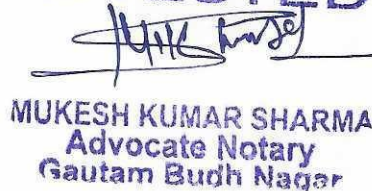 MUKESH KUMAR SHARMA
Advocate Notary
Gautam Budh Nagar